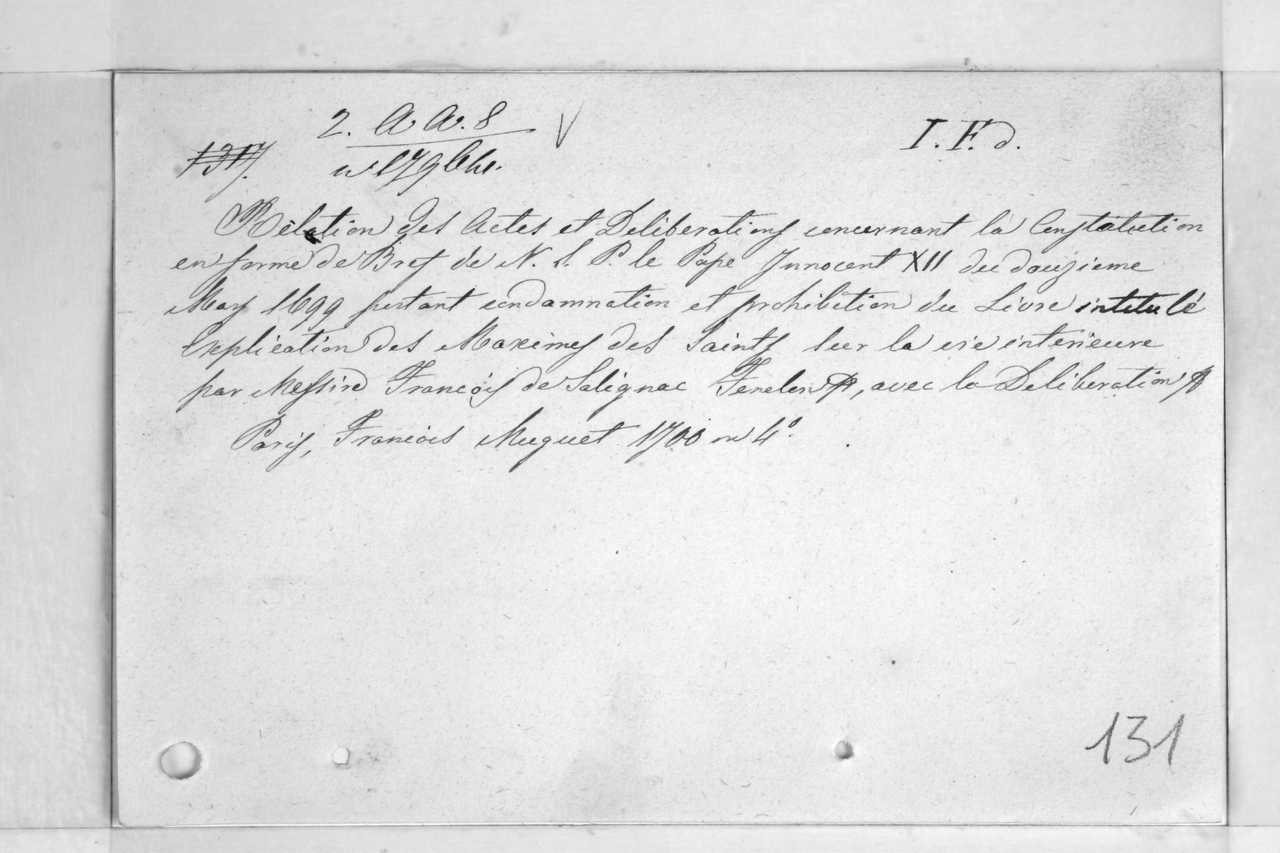 2. A A. 8
I. F. d.
1317.
Rélation des Actes et Deliberations concernant la Constitution
en forme de Bref de N. S. P. le Pape Innocent XII du douzieme
Mars 1699 portant condamnation et prohibition du Livre intitulé
Explication des Maximes des Saints sur la vie interieure
par Messire François de Salignac Fenelon, avec la Deliberation
Paris, Francois Muguet 1700 in 4°.
131